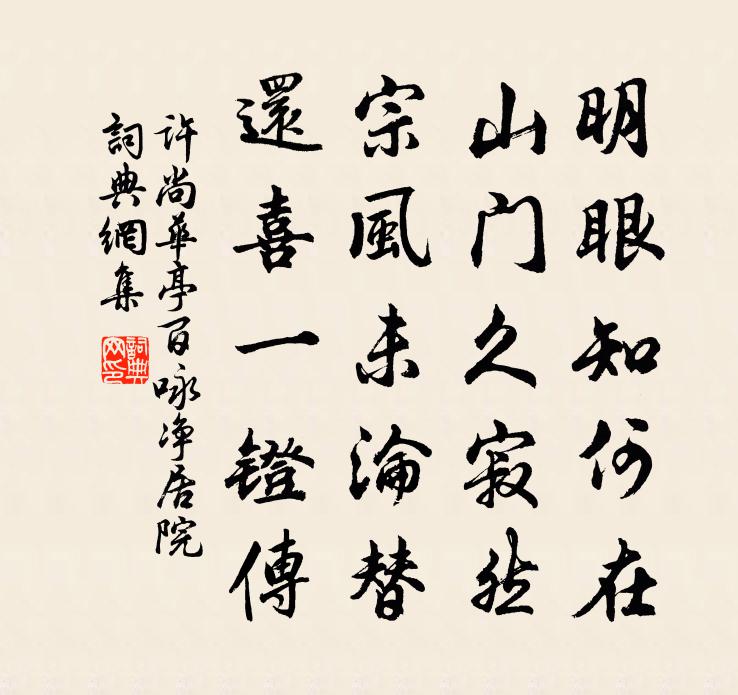 明眼知何在
山门久寂然
宗風未淪替
還喜一鐙傳
许尚華亭百咏净居院
詞典網集
詞典网印